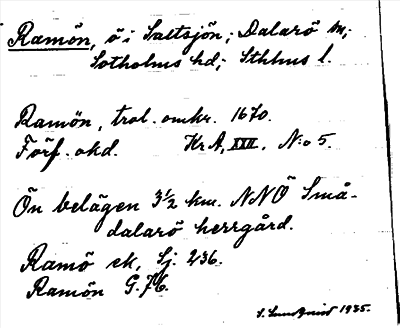 Ramön, ö i Saltsjön; Dalarö sn;
Sotholms hd; Sthlms l.
Ramön, trol. omkr. 1670.
Förf. okd. Kr A, XXII, N:o 5.
Ön belägen 3½ km. NNÖ Små-
dalarö herrgård.
Ramö ek, Sj. 236.
Ramön G. 76.
S. Lundquist 1935.